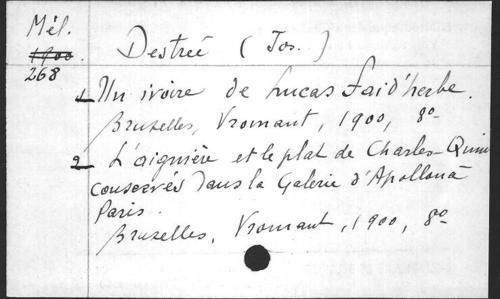 Mél.
1900.
268
Destrée (Jos.)
1 Un ivoire de Lucas Faid'herbe.
Bruxelles, Vromant, 1900, 8o
2 L'aiguière et le plat de Charles-Quint
conservés dans la Galerie d'Apollon à
Paris.
Bruxelles, Vromant, 1900, 8o